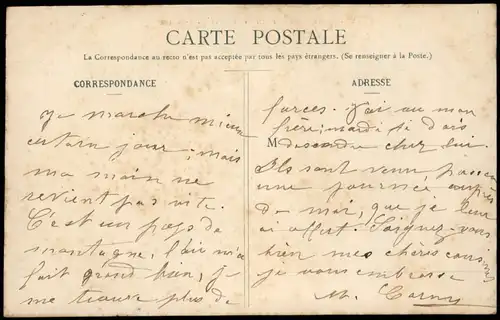 CARTE POSTALE
La Correspondance au recto n'est pas acceptée par tous les pays étrangers. (Se renseigner à la Poste.)
CORRESPONDANCE
je marche mieux
certain jour, mais
ma main ne
revient pas vite.
C'est un pays de
montagne, l'air m'a
fait grand bien, je
me trouve plus de
ADRESSE
forces. J'ai au mon
frère, mardi je dois
M descendre chez lui.
Ils sont venu, passer
une journée auprès
de moi, que je leur
ai offert. Soignez-vous
bien mes chères cousines
je vous embrasse
M.